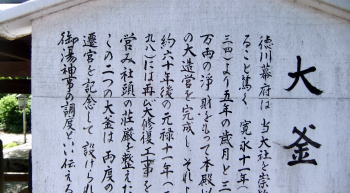 大釜
徳川幕府は当大社を崇
ること篤く寛永十一年(
三四)より五年の歳月と三
万両の浄財を以て本殿
の大造営を完成し、それよ
約六十年後の元禄十一年(
九八)には再び大修復工事を
営み社頭の荘厳を整えた
この二つの大釜は両度の
遷宮を記念して設けられ
御湯神事の調度といい伝える